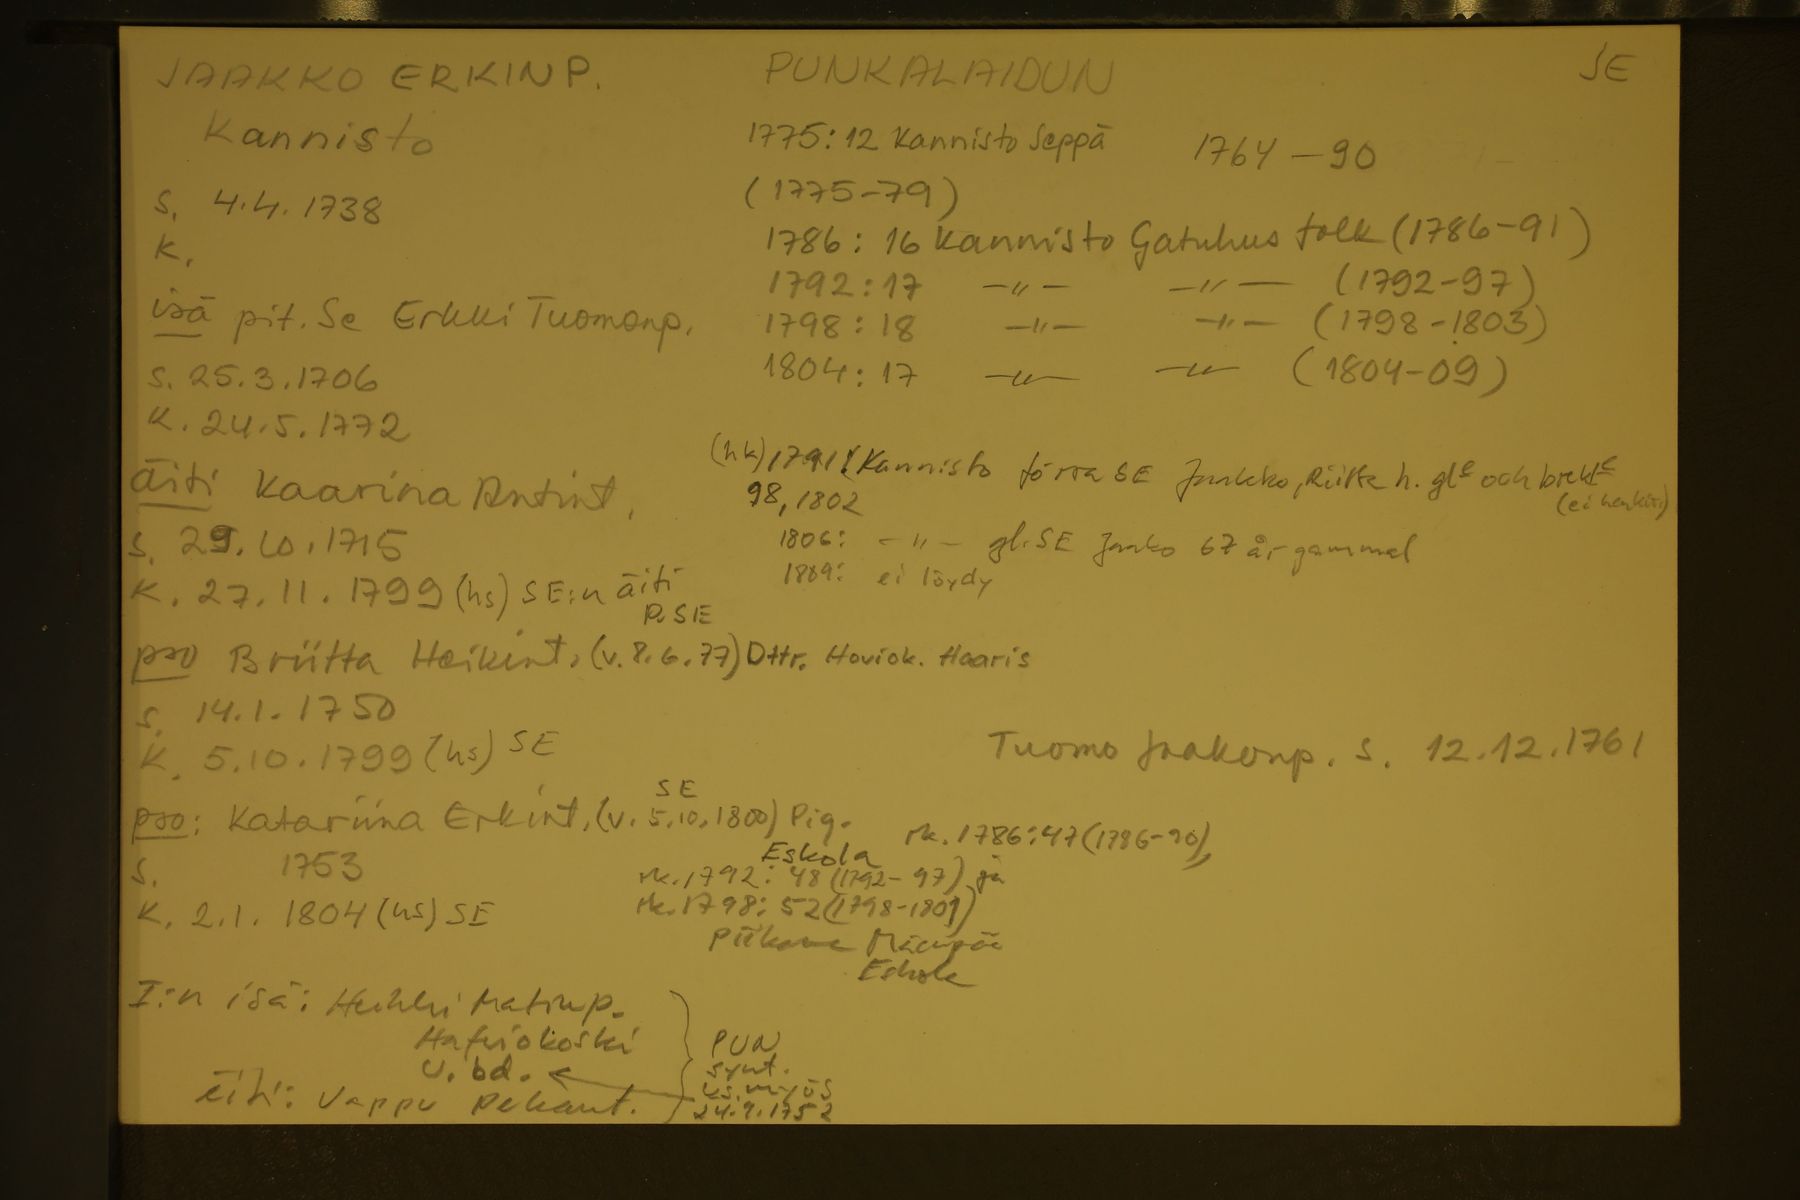 JAAKKO ERKINP. PUNKALAIDUN SE
Kannisto
s. 4.4.1738
K.
isä pit. Se Erkki Tuomanp.
s. 25.3.1706
K. 24.5.1772
äiti Kaarina Antint.
s. 29.10.1715
K. 27.11.1799 (hs) SE:n äiti
P.SE
pso Briitta Heikint. (v. 8.6.77) Dttr. Haviok. Haaris
s. 14.1.1750
K. 5.10.1799 (hs) SE
pso: Katariina Erkint. (v. 5.10.1800) Pig.
SE
Eskola
s. 1753
K. 2.1.1804 (hs) SE
I:n isä: Heikki Matinp.
Haviokoski
U. bd.
äiti: Vappu Pekant.
PUN
synt.
ks. myös
24.9.1752
1775: 12 Kannisto Seppä 1764-90
(1775-79)
1786: 16 Kannisto Gatuhus folk (1786-91)
1792: 17 -"- -"- (1792-97)
1798: 18 -"- -"- (1798-1803)
1804: 17 -"- -"- (1804-09)
(hk) 1791: Kannisto förra SE Jaakko, Riitta h. gl och
98, 1802
1806: -"- gl. SE Jaako 67 år gammal
1809: ei löydy
Tuomo Jaakonp. s. 12.12.1761
rk. 1786: 47 (1786-90),
rk. 1792: 48 (1792-97) ja
rk. 1798: 52 (1798-1801)
Piikana
Eskola